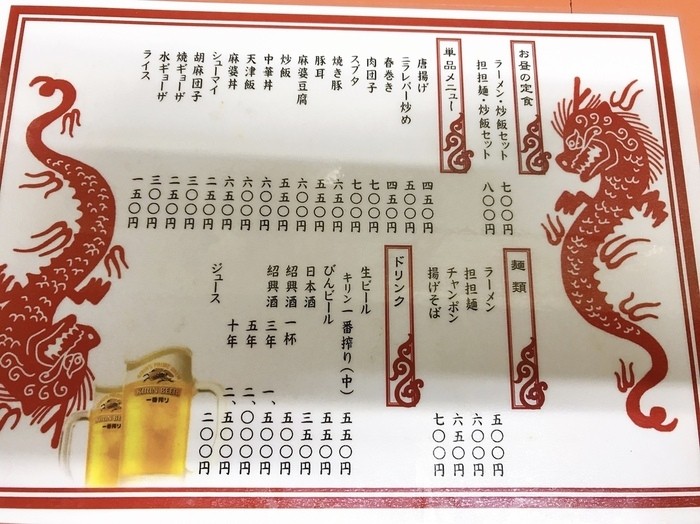 お昼の定食
ラーメン・炒飯セット 七〇〇円
担担麺・炒飯セット 八〇〇円
単品メニュー
唐揚げ 四五〇円
ニラレバー炒め 五〇〇円
春巻き 四五〇円
肉団子 七〇〇円
スブタ 七〇〇円
焼き豚 六五〇円
豚耳 五五〇円
麻婆豆腐 六〇〇円
炒飯 五五〇円
中華丼 六〇〇円
天津飯 六〇〇円
麻婆丼 六五〇円
シューマイ 二五〇円
胡麻団子 三五〇円
焼ギョーザ 二五〇円
水ギョーザ 三〇〇円
ライス 一五〇円
麺類
ラーメン 五〇〇円
担担麺 六〇〇円
チャンポン 六五〇円
揚げそば 七〇〇円
ドリンク
生ビール
キリン一番搾り(中) 五五〇円
びんビール 五五〇円
日本酒 三五〇円
紹興酒 一杯 五〇〇円
紹興酒 三年 一、五〇〇円
五年 二、〇〇〇円
十年 二、五〇〇円
ジュース 二〇〇円
KIRIN BEER
一番搾り